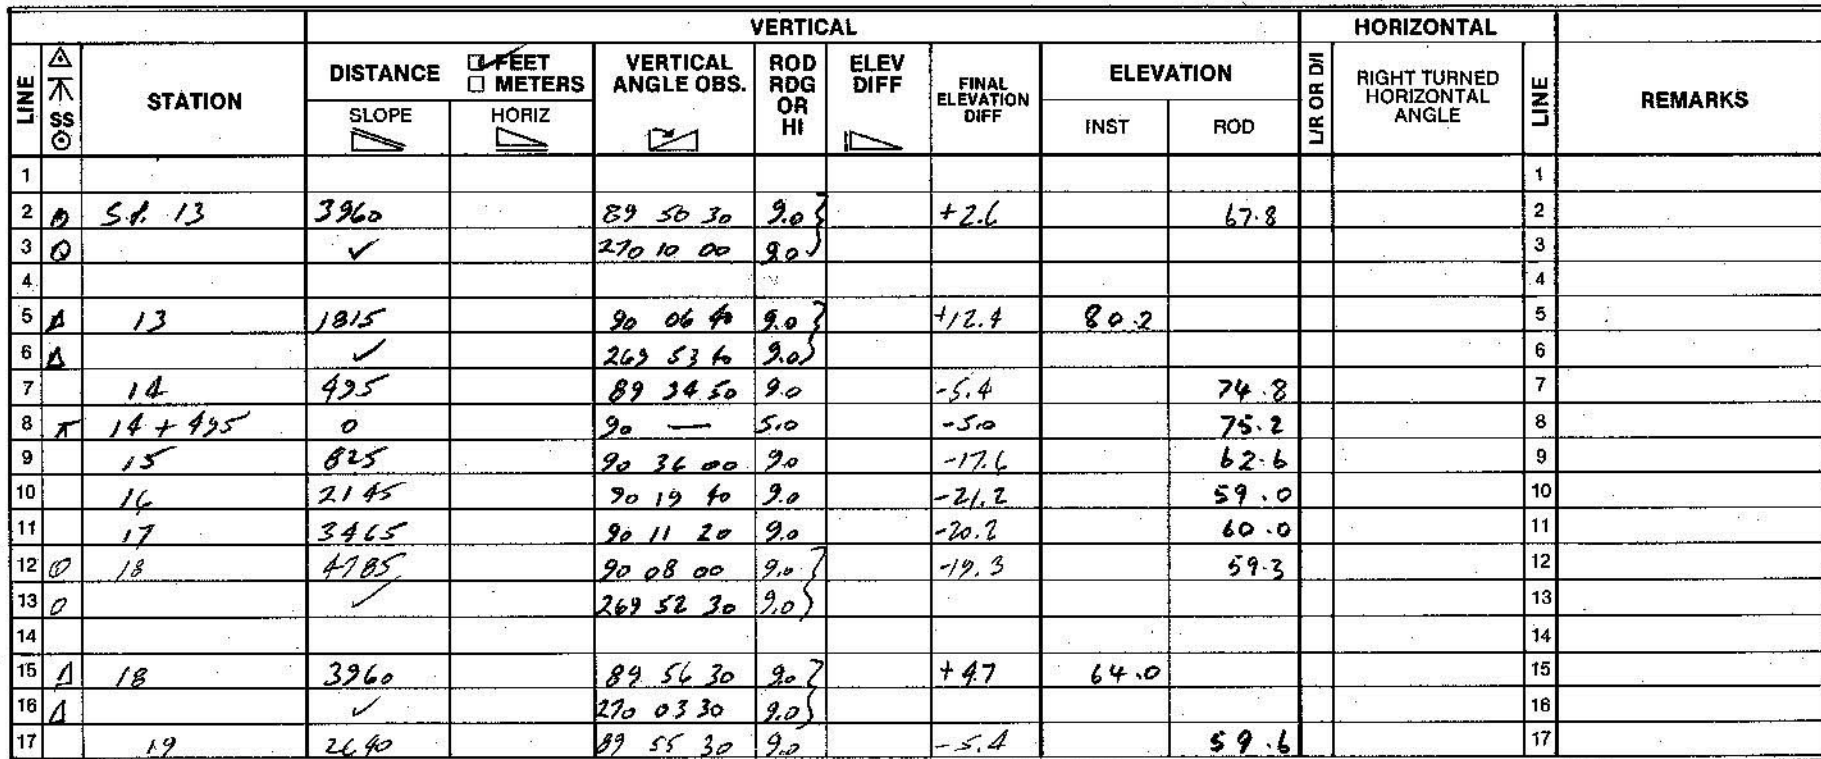 VERTICAL HORIZONTAL
LINE SS STATION DISTANCE FEET METERS SLOPE HORIZ VERTICAL ANGLE OBS. ROD RDG OR HI ELEV DIFF FINAL ELEVATION DIFF ELEVATION INST ROD L/R OR D/I RIGHT TURNED HORIZONTAL ANGLE LINE REMARKS
1 1
2 S.P. 13 3960 89 50 30 9.0 +2.6 67.8 2
3 ✓ 270 10 00 9.0 3
4 4
5 13 1815 90 06 40 9.0 +12.4 80.2 5
6 ✓ 269 53 40 9.0 6
7 14 495 89 34 50 9.0 -5.4 74.8 7
8 14 + 495 0 90 — 5.0 -5.0 75.2 8
9 15 825 90 36 00 9.0 -17.6 62.6 9
10 16 2145 90 19 40 9.0 -21.2 59.0 10
11 17 3465 90 11 20 9.0 -20.2 60.0 11
12 18 4785 90 08 00 9.0 -19.3 59.3 12
13 ✓ 269 52 30 9.0 13
14 14
15 18 3960 89 56 30 9.0 +4.7 64.0 15
16 ✓ 270 03 30 9.0 16
17 19 2640 89 55 30 9.0 -5.4 59.6 17